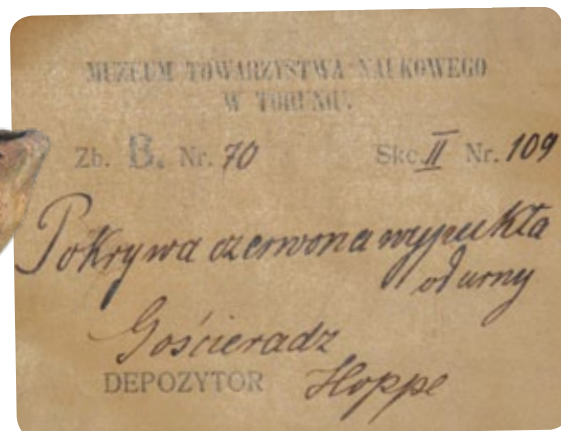 MUZEUM TOWARZYSTWA NAUKOWEGO
W TORUNIU.
Zb. B. Nr. 70 Skc. II Nr. 109
Pokrywa czerwona wypukła
od urny
Gościeradz
DEPOZYTOR Hoppe